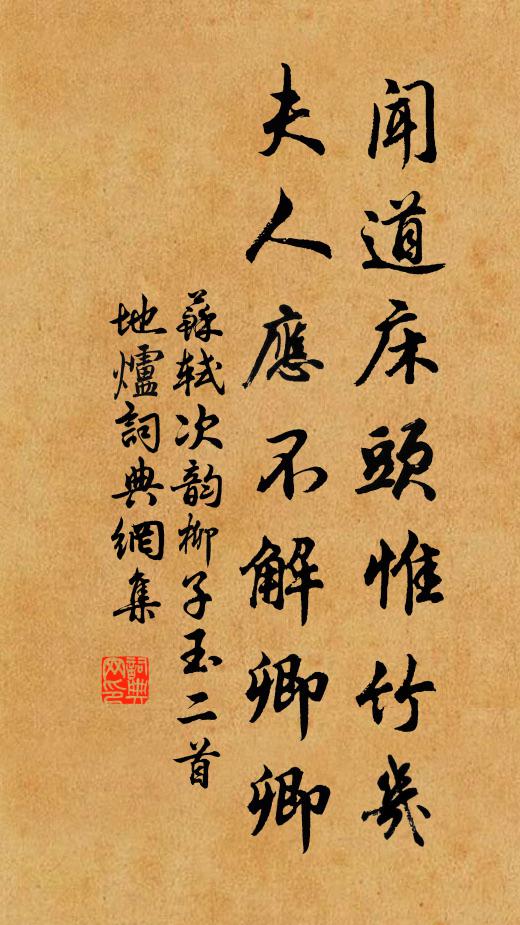 聞道床頭惟竹几
夫人應不解卿卿
蘇軾次韵柳子玉二首
地爐詞典網集
詞典网印